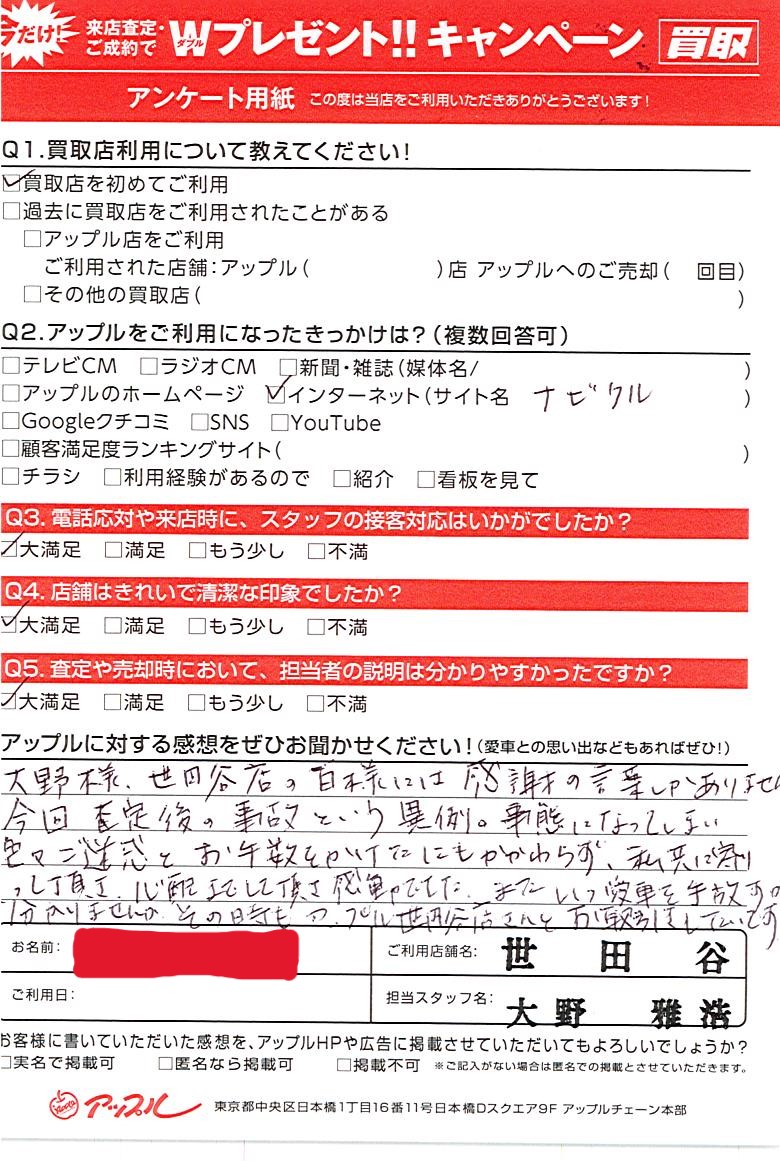 だけ! 来店査定・ご成約で Wダブルプレゼント!! キャンペーン 買取
アンケート用紙 この度は当店をご利用いただきありがとうございます!
Q1.買取店利用について教えてください!
☑買取店を初めてご利用
□過去に買取店をご利用されたことがある
□アップル店をご利用
ご利用された店舗:アップル( )店 アップルへのご売却( 回目)
□その他の買取店( )
Q2.アップルをご利用になったきっかけは?(複数回答可)
□テレビCM □ラジオCM □新聞・雑誌(媒体名/ )
□アップルのホームページ ☑インターネット(サイト名 ナビクル )
□Googleクチコミ □SNS □YouTube
□顧客満足度ランキングサイト( )
□チラシ □利用経験があるので □紹介 □看板を見て
Q3. 電話応対や来店時に、スタッフの接客対応はいかがでしたか?
☑大満足 □満足 □もう少し □不満
Q4. 店舗はきれいで清潔な印象でしたか?
☑大満足 □満足 □もう少し □不満
Q5. 査定や売却時において、担当者の説明は分かりやすかったですか?
☑大満足 □満足 □もう少し □不満
アップルに対する感想をぜひお聞かせください!(愛車との思い出などもあればぜひ!)
大野様、世田谷店の皆様には感謝の言葉しかありません
今回査定後の事故という異例。事態になってしまい
色々ご迷惑とお手数をかけたにもかかわらず、私共に寄り
って頂き、心配までして頂き感動でした。またいつ愛車を手放すか
分かりませんが、その時もアップル世田谷店さんとお取引をしたいです
お名前: ご利用店舗名: 世田谷
ご利用日: 担当スタッフ名: 大野 雅浩
お客様に書いていただいた感想を、アップルHPや広告に掲載させていただいてもよろしいでしょうか?
□実名で掲載可 □匿名なら掲載可 □掲載不可 ※ご記入がない場合は匿名での掲載とさせていただきます。
アップル 東京都中央区日本橋1丁目16番11号日本橋Dスクエア9F アップルチェーン本部